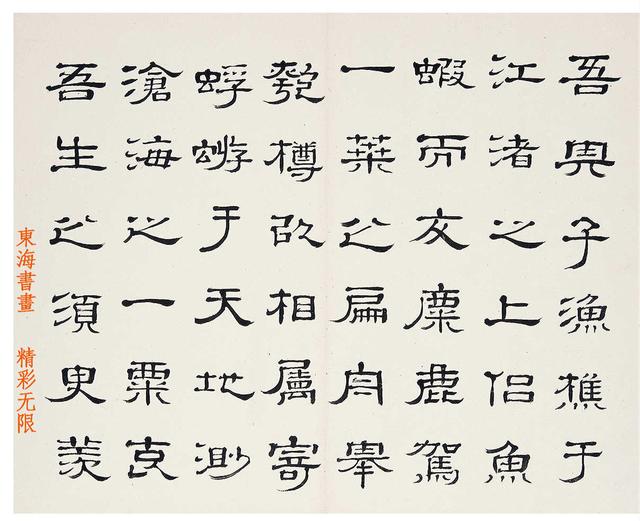 吾與子漁樵于
江渚之上侣魚
蝦而友麋鹿駕
一葉之扁舟舉
匏樽以相屬寄
蜉蝣于天地渺
滄海之一粟哀
吾生之須臾羨
東海書畫 精彩无限